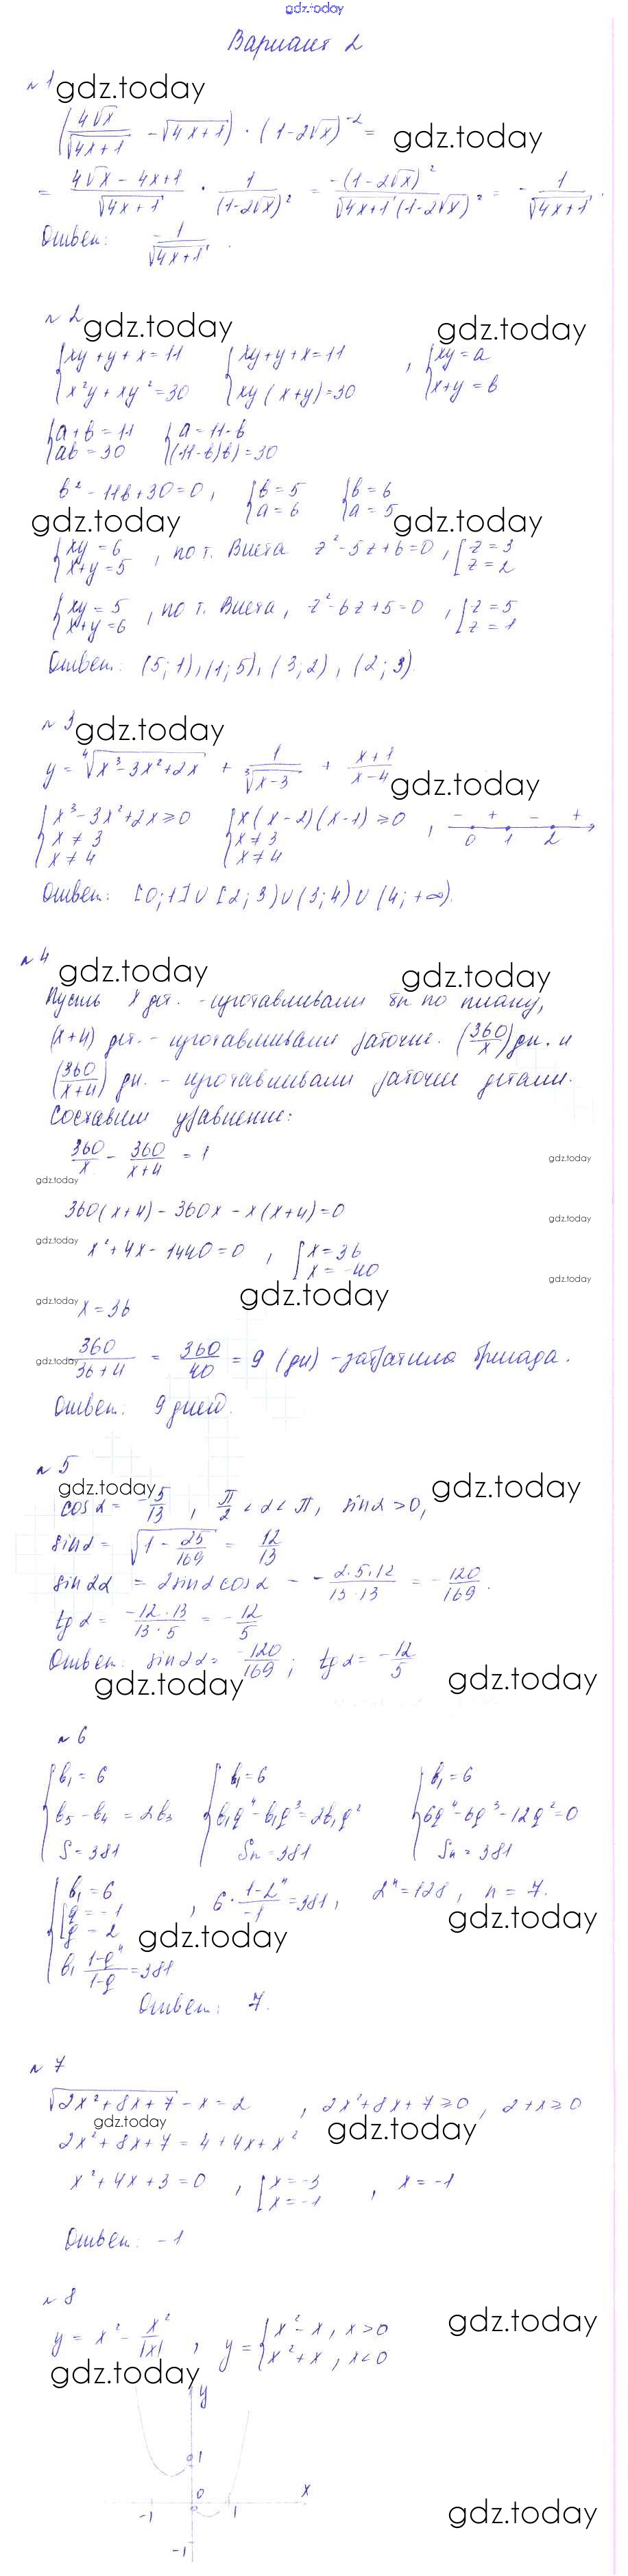 gdz.today
Вариант 2
№1 gdz.today
(4√x/√(4x+1) - √(4x+1)) · (1-2√x)^-2 = gdz.today
= (4√x - 4x+1)/√(4x+1) · 1/(1-2√x)² = -(1-2√x)²/(√(4x+1)(1-2√x)²) = - 1/√(4x+1).
Ответ: -1/√(4x+1).
№2 gdz.today gdz.today
{xy+y+x=11 {xy+y+x=11 , {xy=a
{x²y+xy²=30 {xy(x+y)=30 {x+y=b
{a+b=11 {a=11-b
{ab=30 {(11-b)b)=30
b²-11b+30=0, {b=5 {b=6
{a=6 {a=5
gdz.today gdz.today
{xy=6 , по т. Виета z²-5z+6=0, [z=3
{x+y=5 [z=2
{xy=5 , по т. Виета, z²-6z+5=0, [z=5
{x+y=6 [z=1
Ответ: (5;1),(1;5),(3;2),(2;3).
№3 gdz.today
y = ⁴√(x³-3x²+2x) + 1/³√(x-3) + (x+1)/(x-4)
gdz.today
{x³-3x²+2x≥0 {x(x-2)(x-1)≥0 , - + - +
{x≠3 {x≠3 0 1 2
{x≠4 {x≠4
Ответ: [0;1]∪[2;3)∪(3;4)∪(4;+∞).
№4
gdz.today gdz.today
Пусть x дет. - изготавливали бы по плану,
(x+4) дет. - изготавливали рабочие. (360/x) дн. и
(360/(x+4)) дн. - изготавливали рабочие детали.
Составим уравнение:
360/x - 360/(x+4) = 1
gdz.today
gdz.today
360(x+4)-360x-x(x+4)=0
gdz.today
gdz.today
x²+4x-1440=0 , [x=36
[x=-40
gdz.today
gdz.today
gdz.today x=36
gdz.today 360/(36+4) = 360/40 = 9 (дн) - затратила бригада.
Ответ: 9 дней.
№5
gdz.today gdz.today
cos α = -5/13 , π/2 < α < π, sin α > 0,
sin α = √(1 - 25/169) = 12/13
sin 2α = 2 sin α cos α - -(2·5·12)/(13·13) = -120/169.
tg α = (-12·13)/(13·5) = -12/5
Ответ: sin 2α = -120/169; tg α = -12/5
gdz.today gdz.today
№6
{b₁=6 {b₁=6 {b₁=6
{b₅-b₄=2b₃ {b₁q⁴-b₁q³=2b₁q² {6q⁴-6q³-12q²=0
{S=381 {Sn=381 {Sn=381
{b₁=6
{[q=-1 , 6·(1-2ⁿ)/-1=381, 2ⁿ=128, n=7.
{[q=2
gdz.today gdz.today
{b₁ (1-qⁿ)/(1-q)=381
Ответ: 7.
№7
√(2x²+8x+7)-x=2 , 2x²+8x+7≥0, 2+x≥0
gdz.today gdz.today
2x²+8x+7=4+4x+x²
x²+4x+3=0 , [x=-3 , x=-1
[x=-1
Ответ: -1
№8
gdz.today
y = x² - x²/|x| , y={x²-x, x>0
{x²+x, x<0
gdz.today
y
1
0 x
-1 1
gdz.today
-1